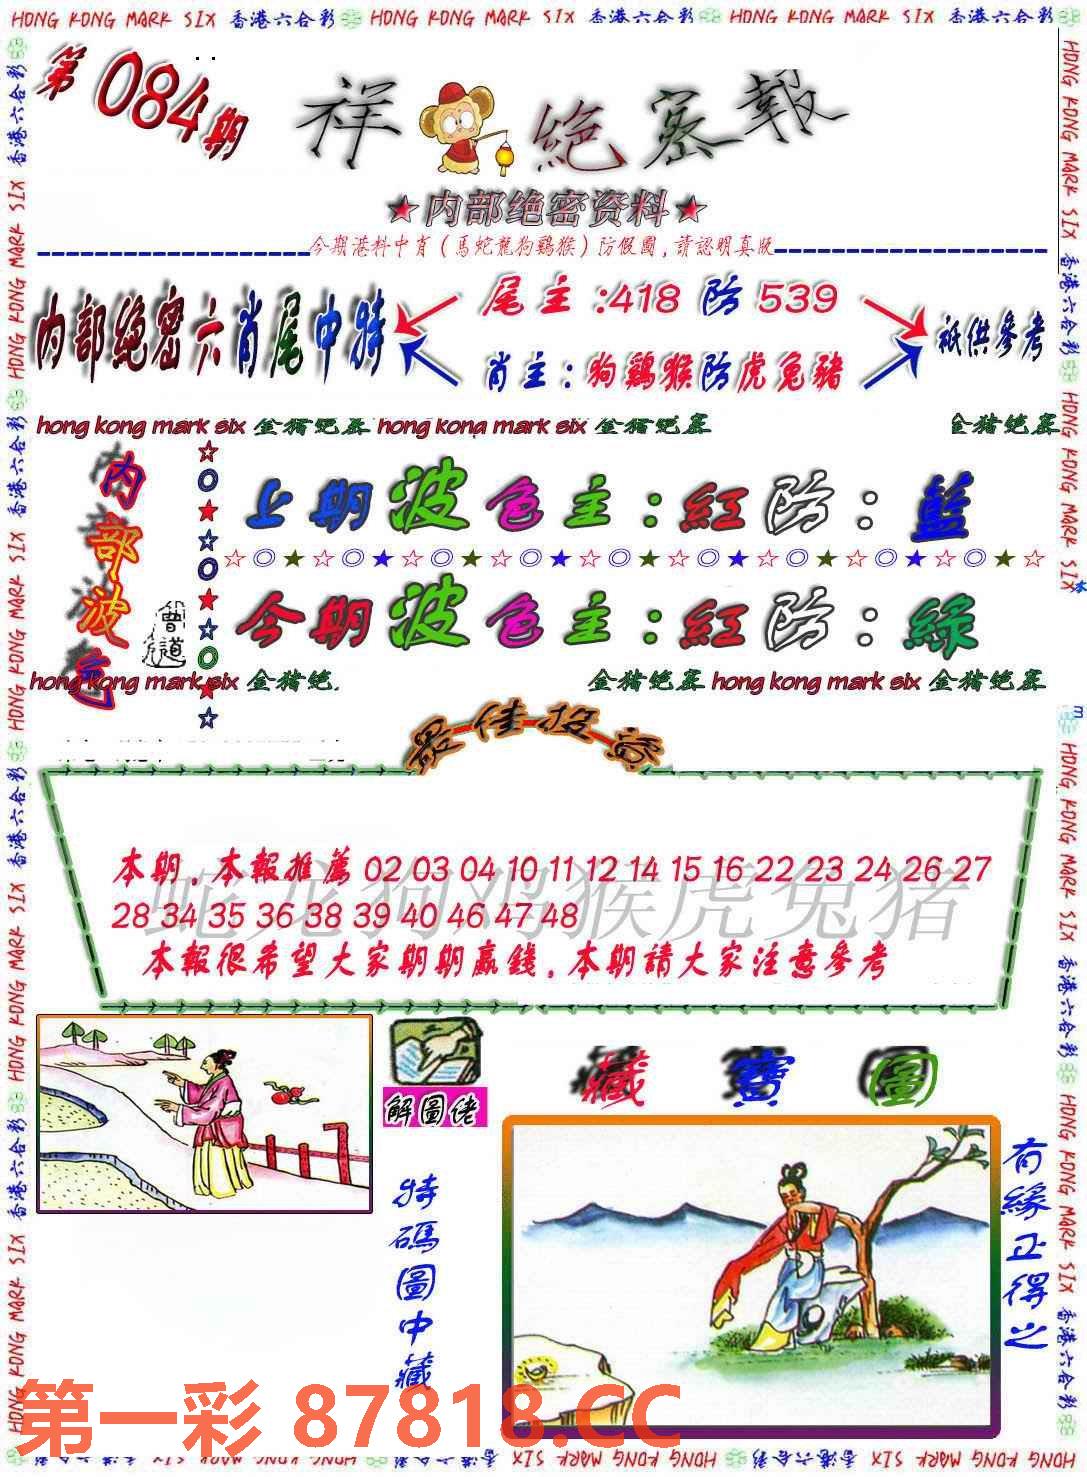 HONG KONG MARK SIX 香港六合彩 HONG KONG MARK SIX 香港六合彩 HONG KONG MARK SIX 香港六合彩
第084期
祥 絶密報
★内部绝密资料★
今期港料中肖（馬蛇龍狗鷄猴）防假圖,請認明真版
内部绝密六肖尾中特
尾主:418 防 539
肖主:狗鷄猴防虎兔豬
祇供參考
hong kong mark six 金猪绝密 hong kong mark six 金猪绝密
金猪绝密
内部波色
上期波色主:紅防:藍
☆◎★☆◎★☆◎★☆◎★☆◎★☆◎★☆◎★☆◎★☆◎★☆
曾道
今期波色主:紅防:綠
hong kong mark six 金猪绝
金猪绝密 hong kong mark six 金猪绝密
最佳投
蛇龙狗鸡猴虎兔猪
本期,本報推薦 02 03 04 10 11 12 14 15 16 22 23 24 26 27
28 34 35 36 38 39 40 46 47 48
本報很希望大家期期贏錢,本期請大家注意參考
解圖佬
藏寶圖
特碼圖中藏
有緣正得之
第一彩 87818.CC